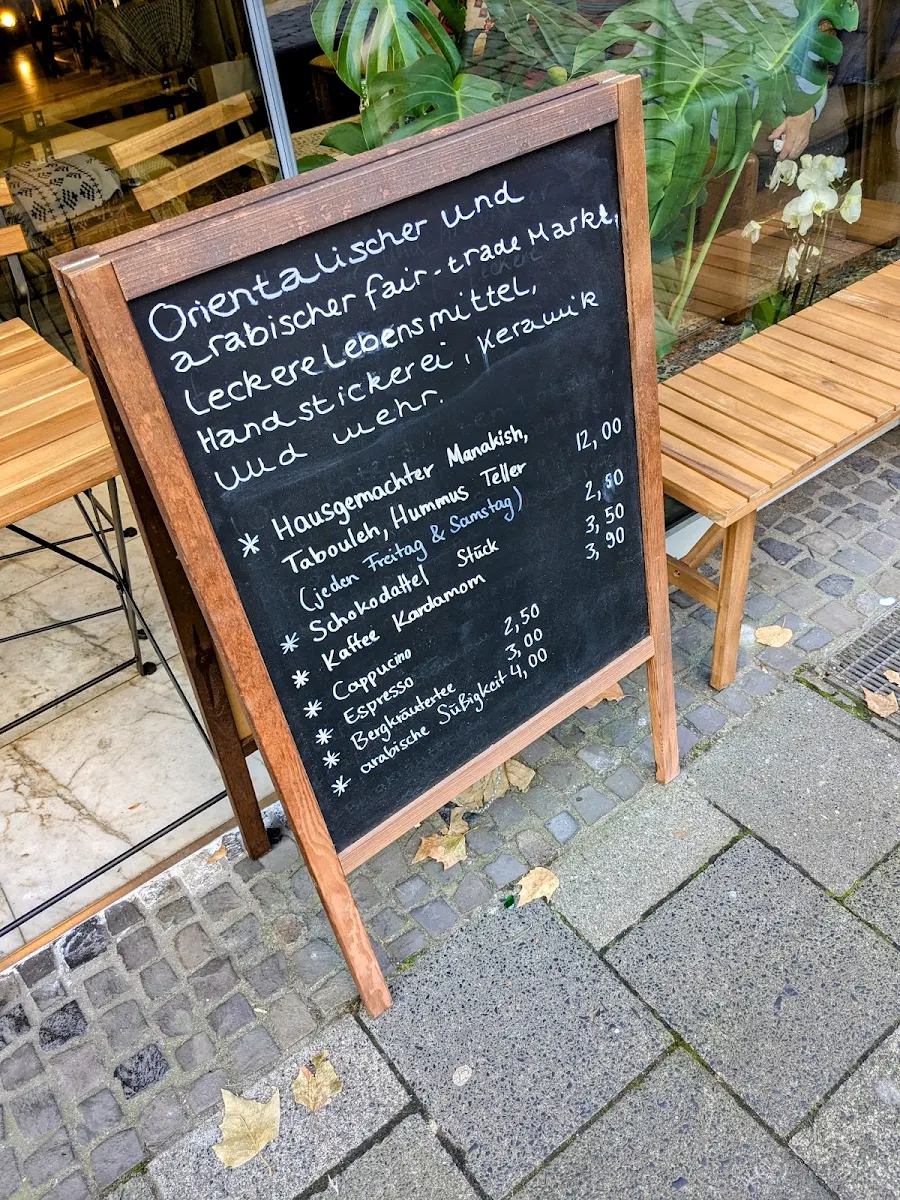 Orientalischer und
arabischer fair-trade Markt,
Leckere Lebensmittel,
Handstickerei, Keramik
und mehr.
* Hausgemachter Manakish,
Tabouleh, Hummus Teller 12,00
(jeden Freitag & Samstag)
* Schokodattel Stück
* Kaffee Kardamom 3,50
* Cappucino 3,90
* Espresso 2,50
* Bergkräutertee 3,00
* arabische Süßigkeit 4,00